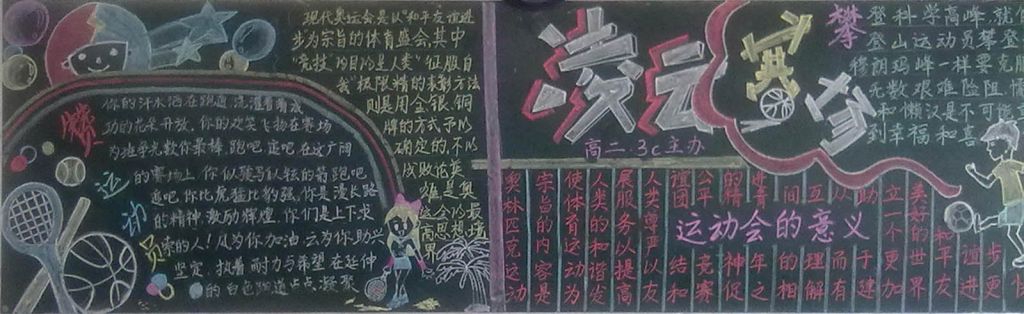 致
运
动
员
你的汗水洒在跑道,浇灌着成
功的花朵开放。你的欢笑飞扬在赛场
为班争光数你最棒。跑吧,追吧,在这广阔
的赛场上,你似骏马似轻的箭。跑吧
追吧,你比虎猛比豹强。你是漫长路
的精神激励辉煌。你们是上下求
索的人!风为你加油,云为你助兴
坚定、执着、耐力与希望在延伸
的白色跑道上点点凝聚
现代奥运会是以"和平友谊进
步为宗旨的体育盛会,其中
"竞技"的目的是人类"征服自
我"极限精的表彰方法
则是用金银铜
牌的方式予以
确定的,不以
成败论英
雄是奥
运会的最
高思想境
界
凌云
赛场
高二.3c主办
攀登科学高峰,就
登山运动员攀登
穆朗玛峰一样要克服
无数艰难险阻,懦
和懒汉是不可能
到幸福和喜
运动会的意义
奥林匹克运动
宗旨的内容是
使体育运动为
人类的和谐发
展服务以提高
人类尊严以友
谊团结和
公平竞赛
的精神促
进青年之
间的相
互理解
从而有
助于建
立一个更加
美好的世界
和平友
谊进
步更